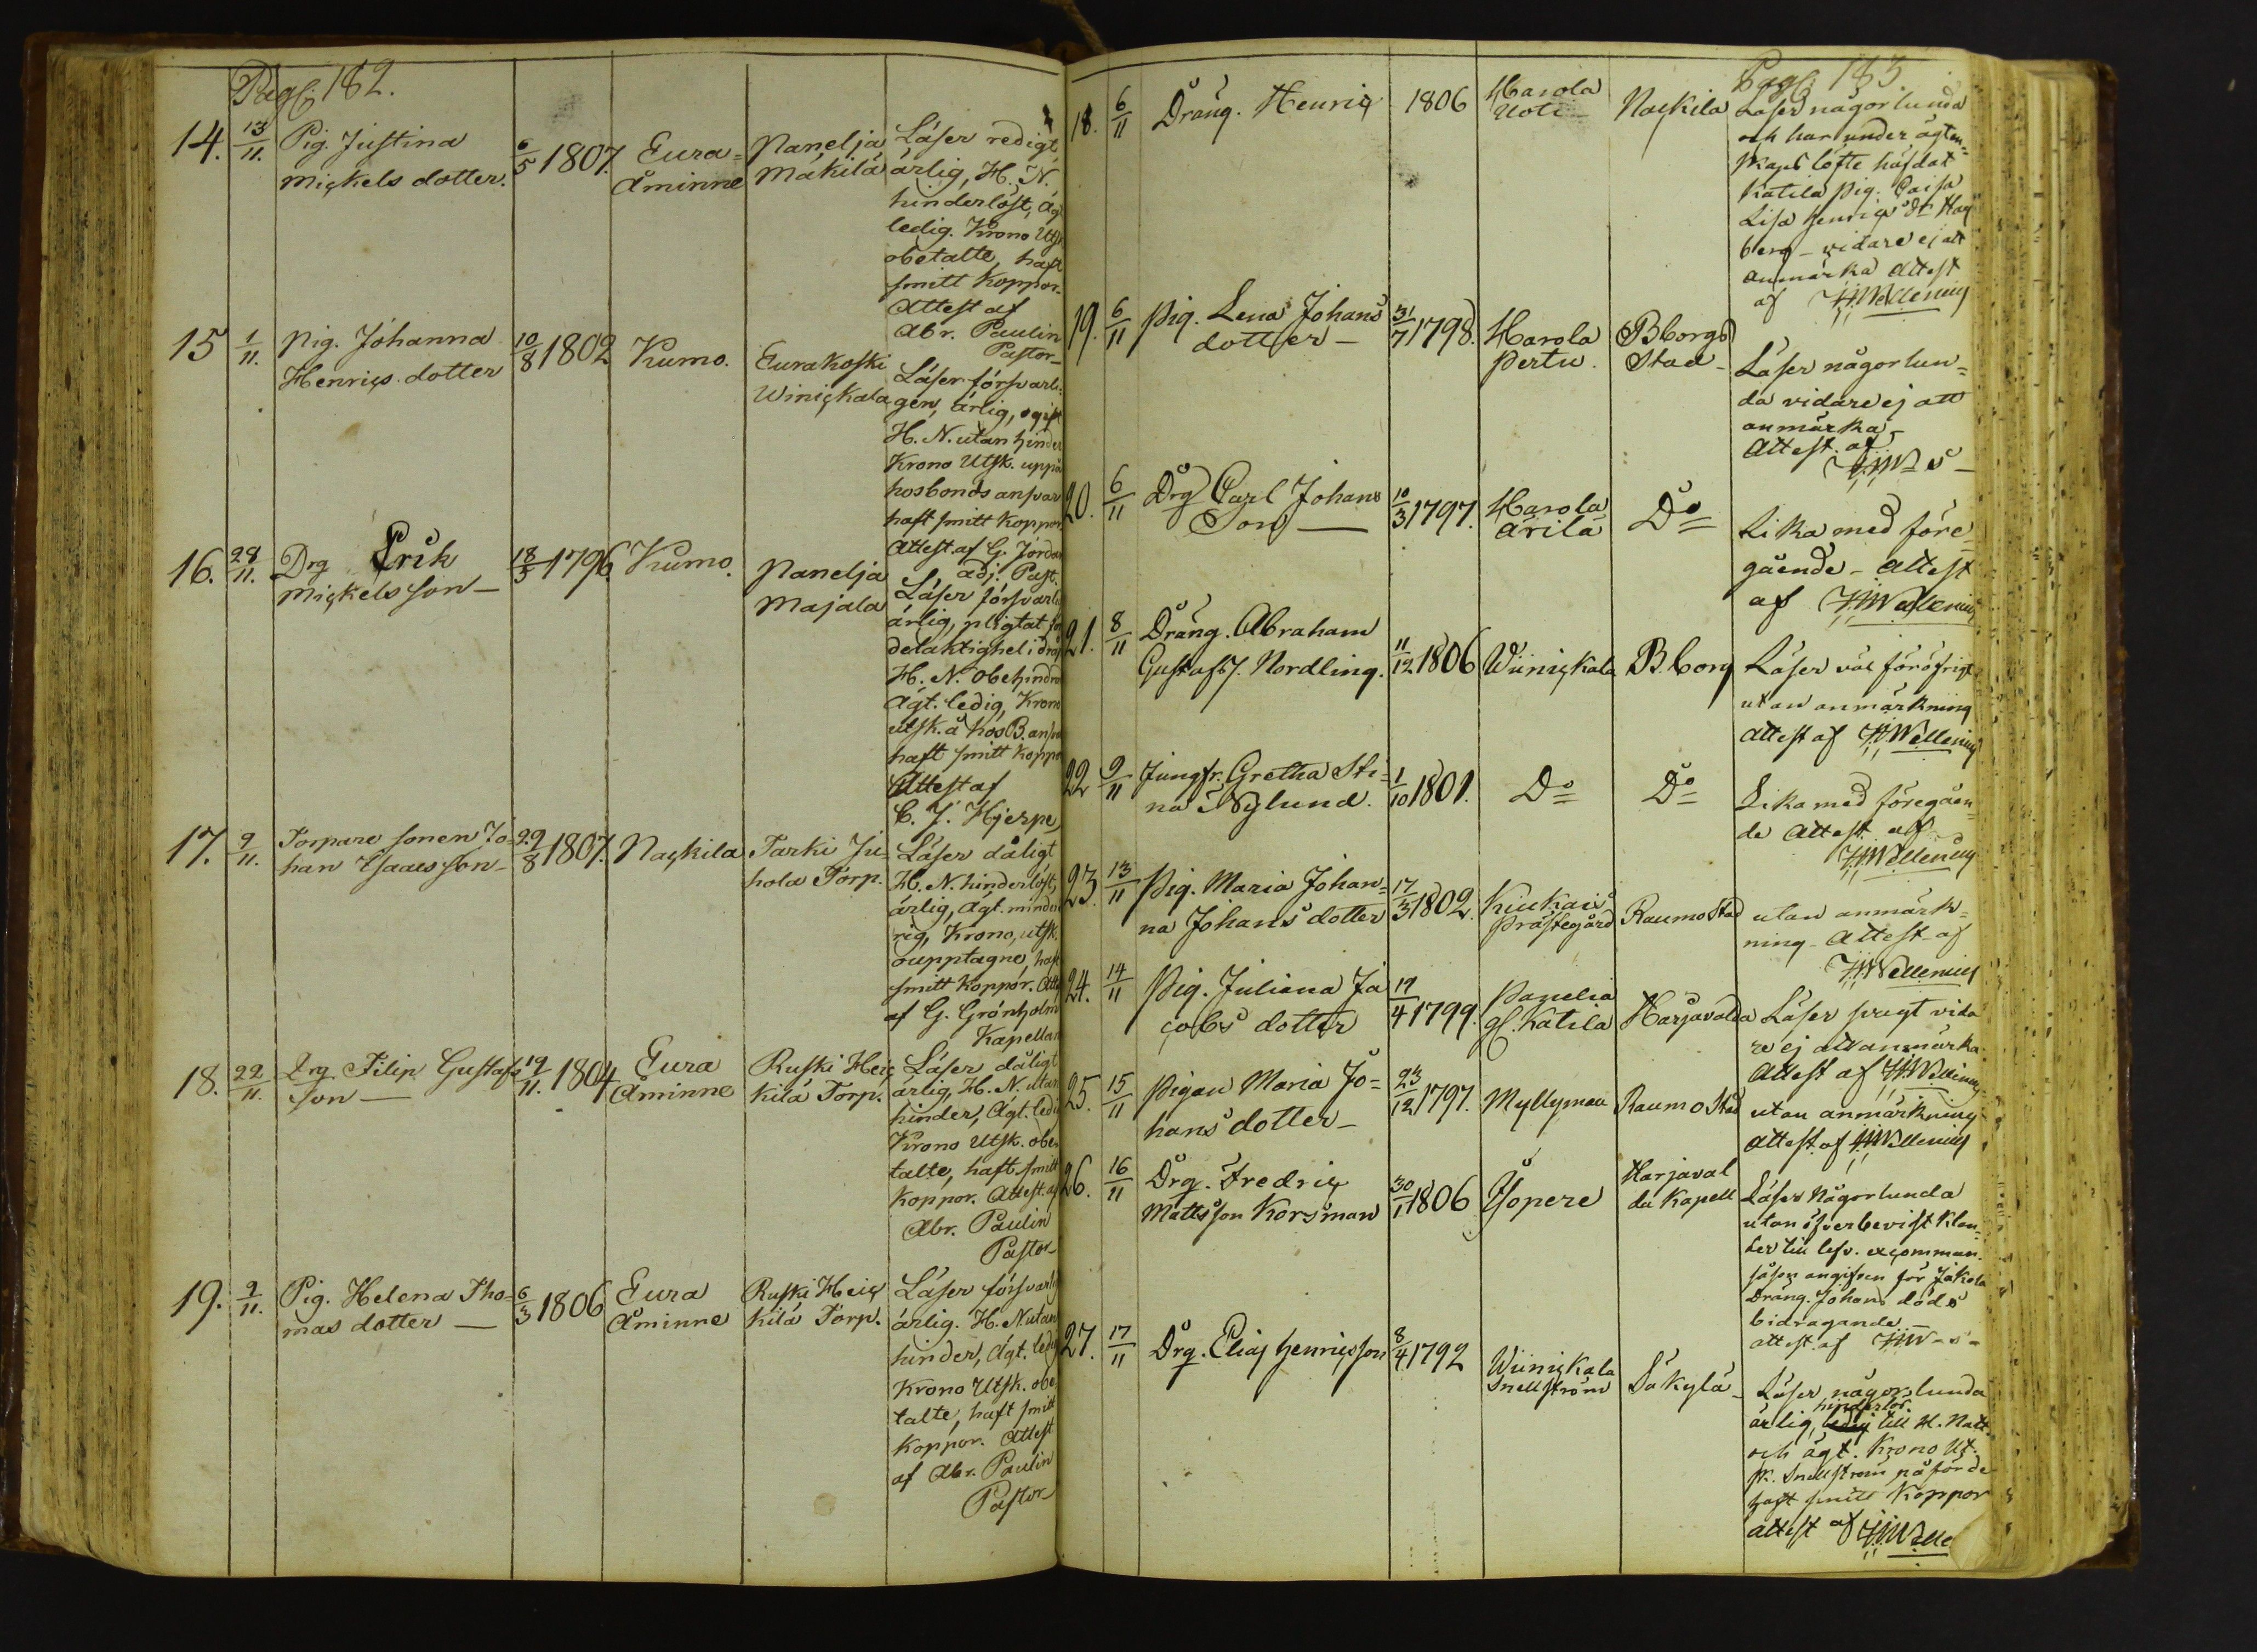 Pag: 182.
14. 13/11. Pig. Justina
Mickels dotter. 6/5 1807. Eura-
Åminne Panelja
Mäkilä Läser redigt,
ärlig, H. N.
hinderlöst, Ägt
ledig. Krono Utsk.
obetalte, haft
smitt koppor.
Attest af
Abr. Paulin
Pastor
15 1/11. Pig. Johanna
Henrics dotter 10/8 1802 Kumo. Eurakoski
Winickala Läser försvarli-
gen, ärlig, ogift
H. N. utan hinder
Krono Utsk. uppå
hosbonds ansvar
haft smitt koppor
Attest af G. Jordan
adj. Past.
16. 28/11. Drg Erik
Mickels son 18/5 1796 Kumo. Panelja
Majala Läser försvarli
ärlig, pligtat för
delaktighet i
H. N. obehindra
Ägt. ledig, Krono
utsk. å hosB. ansva
haft smitt koppo
Attest af
C. J. Hjerpe
17. 9/11. Torpare sonen Jo-
han Isaacs son 29/8 1807. Nackila Tarki Ju-
hola Torp. Läser dåligt
H. N. hinderlöst,
ärlig, Ägt. minder
rig, Krono, utsk.
oupptagne, haft
smitt koppor. Atte
af G. Grönholm
Kapellan
18. 22/11. Drg Filip Gustafs
son 19/11. 1804 Eura
Åminne Ruski Heic
kilä Torp. Läser dåligt
ärlig, H. N. utan
hinder, Ägt. ledi
Krono Utsk. obe-
talte, haft smitt
koppor. Attest af
Abr. Paulin
Pastor
19. 9/11. Pig. Helena Tho-
mas dotter 6/3 1806 Eura
Åminne Ruski Heic
kilä Torp. Läser försvarli
ärlig. H. N utan
hinder, Ägt. ledi
Krono Utsk. obe
talte, haft smitt
koppor. Attest
af Abr. Paulin
Pastor
Pag: 183.
18. 6/11 Dräng. Henric 1806 Harola
Uoti Nackila Läser någorlunda
och har under ägten-
skaps löfte häfdat
Katila pig. Caisa
Lisa Henrics dr Hag
berg - vidare ej att
anmärka Attest
af H Wellenius
19. 6/11 Pig. Lena Johans
dotter 31/7 1798. Harola
Pertu. Bborgs
Stad Läser någorlun-
da vidare ej att
anmärka
Attest. af
HW s
20. 6/11 Drg Carl Johans
Son 10/3 1797. Harola
Ärilä Do Lika med före-
gående - Attest
af HWellenius
21. 8/11 Dräng. Abraham
Gustafs. Nordling. 11/12 1806 Wiinickala B.borg Läser väl föröfrigt
utan anmärkning
Attest af HWellenius
22 9/11 Jungfr. Gretha Sti-
na Nylund. 1/10 1801. Do Do Lika med föregåen-
de Attest af
HWellenius
23. 13/11 Pig. Maria Johan-
na Johans dotter 17/3 1802. Kiukais
Prästegård Raumo Stad utan anmärk-
ning - Attest af
HWellenius
24. 14/11 Pig. Juliana Ja
cobs dotter 19/4 1799. Panelia
gl. Katila Harjavalda Läser svagt vida
re ej att anmärka.
Attest af HWellenius
25. 15/11 Pigan Maria Jo-
hans dotter 23/12 1797. Myllymau Raumo Stad utan anmärkning
Attest. af HWellenius
26. 16/11 Drg. Fredric
Mattsson Korsman 30/1 1806 Yopere Harjaval
da Kapell Läser Någorlunda
utan öfverbevist klan-
der till lefv.
såsom angifven för Jakola
Dräng. Johans döds
bidragande
attest. af HW-s-
27. 17/11 Drg. Elias Henricsson 8/4 1792 Wiinickala
Snellström Säkylä Läser någorlunda
ärlig, hinderlös. till H. Natt.
och ägt. Krono Ut-
sk. Snellström påförde
haft smitt Koppor
attest af HWelle